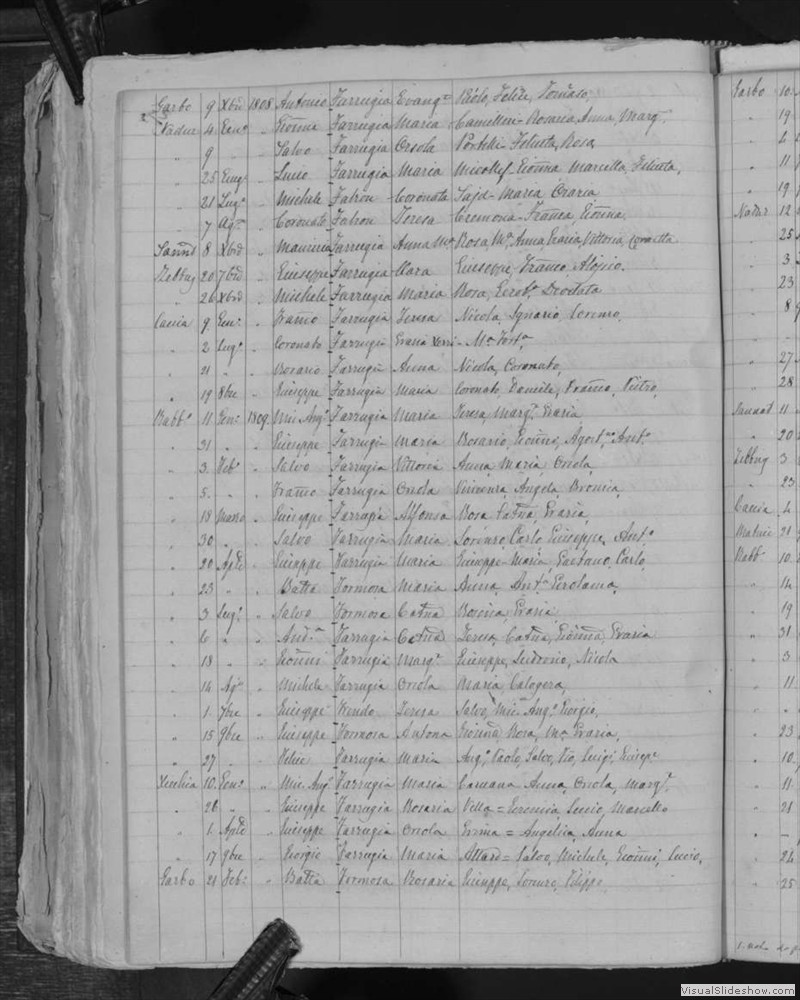 Garbo 9 Xbre 1808 Antonio Farrugia Evangta Paolo, Felice, Tomaso,
Nadur 4 Genº " Gioãnna Farrugia Maria Camelleri - Rosaria, Anna, Marga,
" 9 " " Salvo Farrugia Orsola Portelli - Felicita, Rosa,
" 25 Giugº " Lucio Farrugia Maria Micallef - Marcella, Felicita,
" 21 Lugº " Michele Farrugia Coronata Said - Maria Grazia
" 7 Agº " Coronato Teresa Cremona -
Sannat 8 Xbre " Maurizio Farrugia Anna Mª Rosa, Mª, Anna, Grazia, Vittoria,
Zebbug 20 7bre " Giuseppe Farrugia Clara Giuseppe, Franco, Aloisio.
" 26 Xbre " Michele Farrugia Maria Rosa,
Caccia 9 Genº " Franco Farrugia Teresa Nicola, Ignazio, Lorenzo,
" 2 Lugº " Coronato Farrugia Grazia
" 21 " " Rosario Farrugia Anna Nicola, Coronato,
" 19 8bre " Giuseppe Farrugia Maria Coronato, Daniele, Franco, Pietro,
Rabbº 11 Genº 1809 Mic. Angº Farrugia Maria Teresa, Margª, Grazia
" 31 " " Giuseppe Farrugia Maria Rosario, Gioãnni, Agostº, Antº
" 3 Febº " Salvo Farrugia Vittoria Anna, Maria, Orsola,
" 5 " " Franco Farrugia Orsola Vincenza, Angela,
" 18 Marzo " Giuseppe Farrugia Alfonsa Rosa, Catña, Grazia,
" 30 " " Salvo Farrugia Maria Lorenzo, Carlo, Giuseppe, Antº
" 20 Aple " Giuseppe Farrugia Maria Giuseppe Maria, Gaetano, Carlo,
" 23 " " Batta Formosa Maria Anna, Antª, Gerolama,
" 3 Lugº " Salvo Formosa Catña Grazia
" 6 " " Andª Farrugia Catña Teresa, Catña, Gioãnna, Grazia
" 18 " " Gioãnni Farrugia Margª Giuseppe, Nicola
" 14 Agº " Michele Farrugia Orsola Maria Calogera,
" 1 7bre " Giuseppe Teresa Salvo, Mic. Angº, Giorgio,
" 15 9bre " Giuseppe Formosa Antona Gioãnna, Rosa, Mª Grazia,
" 27 " " Felice Farrugia Maria Angº, Paolo, Salvo, Pio, Luigi, Giusepe
Xeuchia 10 Genº " Mic. Angº Farrugia Maria Camana Anna, Orsola, Margª,
" 26 " " Giuseppe Farrugia Rosaria Vella = Geremia, Lucio, Marcello
" 1 Aple " Giuseppe Farrugia Orsola Grima = Angelica, Anna
" 17 9bre " Giorgio Farrugia Maria Attard = Salvo, Michele, Gioãnni, Lucio,
Garbo 21 Feb: " Batta Formosa Rosaria Giuseppe, Lorenzo, Filippo
Garbo 10
" 19
" 4
" 11
" 19
Nadur 12
" 25
" 3
" 23
" 8
" 27
" 28
Sannat 11
" 20
Zebbug 3
" 23
Caccia 4
21
Rabbº 10
" 14
" 19
" 31
" 3
" 11
" 23
" 10
" 11
" 21
" 24
" 25
VisualSlideshow.com